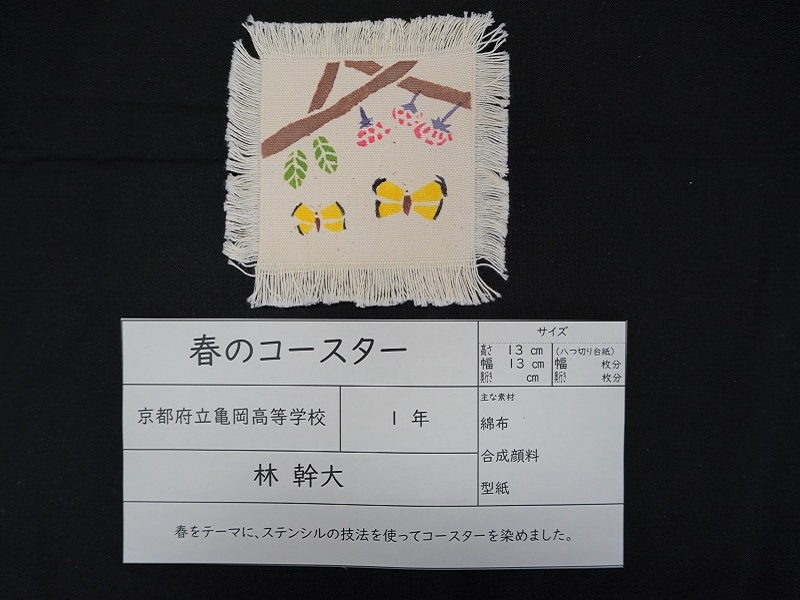 春のコースター
サイズ
高さ 13 cm
幅 13 cm
奥行き cm
(八つ切り台紙)
幅 枚分
奥行き 枚分
京都府立亀岡高等学校
1 年
主な素材
綿布
合成顔料
型紙
林 幹大
春をテーマに、ステンシルの技法を使ってコースターを染めました。